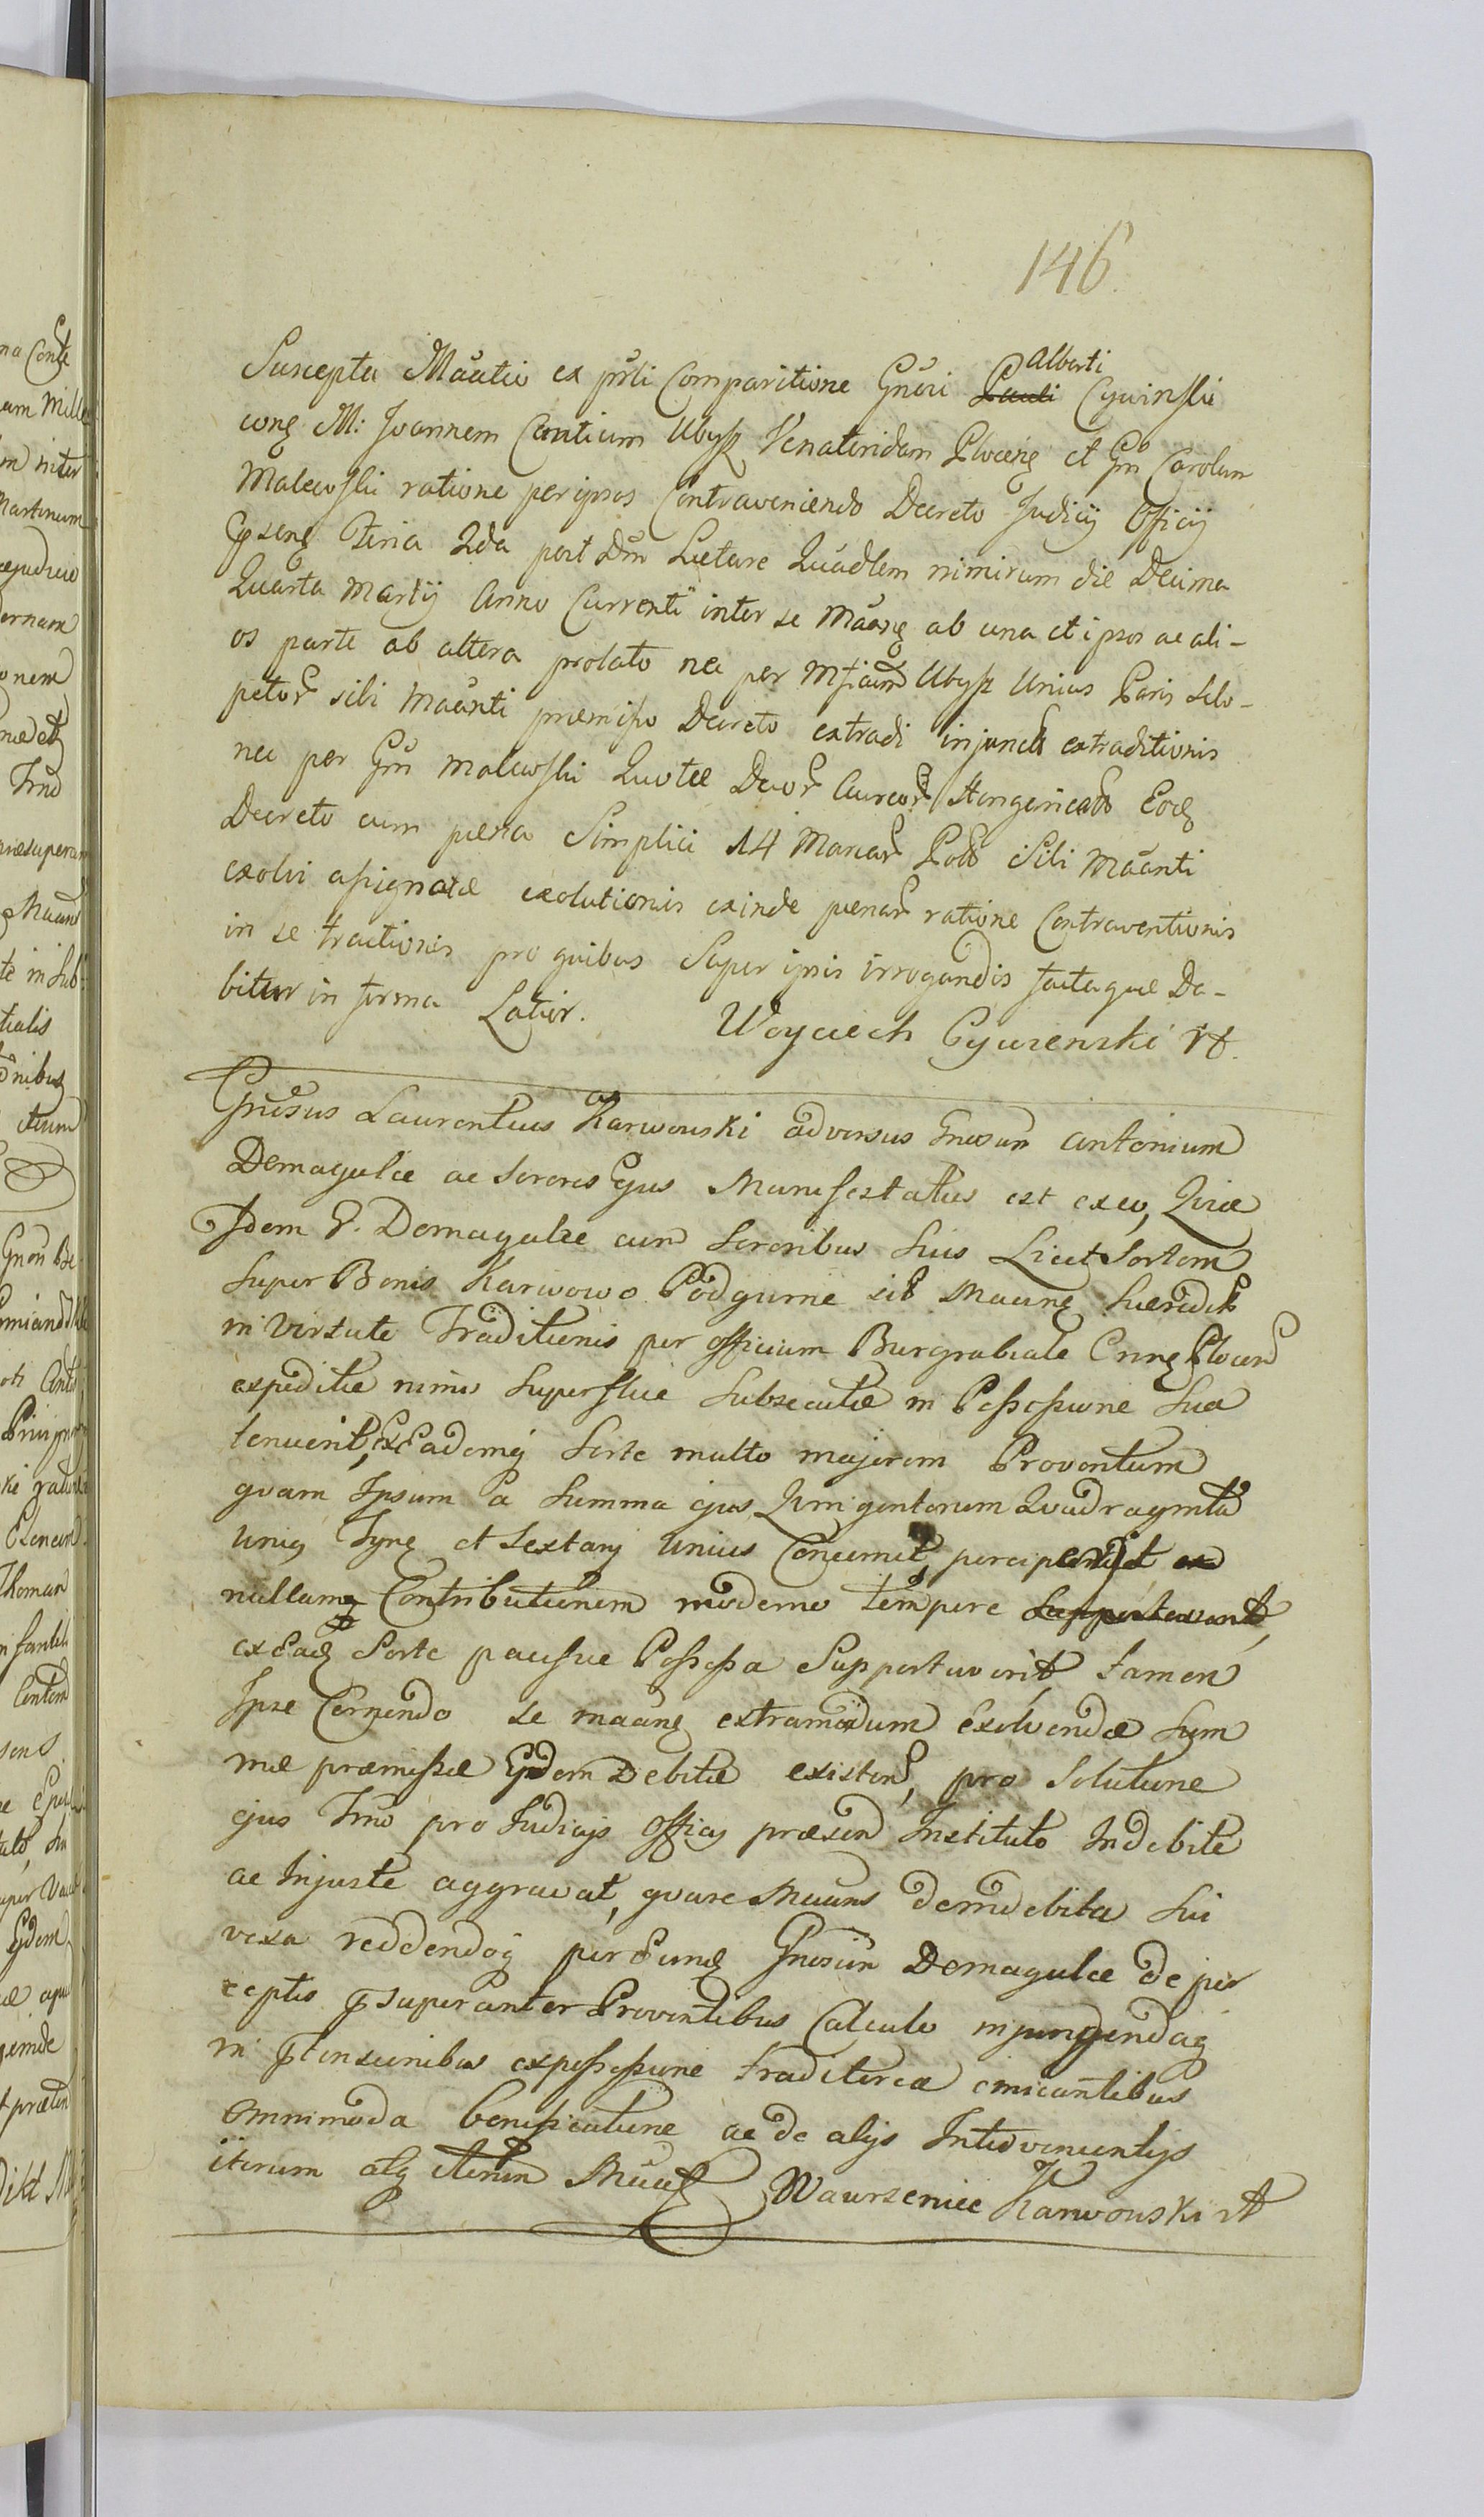 146.
Suscepta Mãtio ex prli Comparitione Gnõri Pauli Alberti Cywinski
cong M: Joannem Cantium Ubysz Venatoridam Plocens et Gm Carolum
Malewski ratione per ipsos Contraveniendo Decreto Judicij Officij
psens feria 2da post Dm Lætare Quadlem nimirum die Decima
Quarta Martij Anno Currenti inter se Maãng ab una et ipsos ac ali-
os parte ab altera prolato nec per Mficum Ubysz Unius Paris Sclo-
petor sibi Maãnti præmisso Decreto extradi injuncti extraditionis
nec per Gm Malewski Quotæ Duor Aureor Hungaricalb Eod
Decreto cum pœna Simplici 14 Marcar Polo Sibi Maãnti
exolvi assignatæ exolutionis exinde pœnar ratione Contraventionis
in se tractionis pro quibus Super ipsis irrogandis factaque Da-
bitur in forma Latior. Woyciech Cywienski
Gnosus Laurentius Karwowski adversus Gnosum Antonium
Demagalæ ac Sorores Ejus Manifestatus est ex eo, Quia
Idem G. Domagalæ cum Sororibus Suis Licet Sortem
Super Bonis Karwowo Podgurne sib Maang hæredit
in Virtute Traditionis per officium Burgrabiale Crng Plocen
expeditæ nimis Superfluæ Subsecutæ in Possessione Sua
tenuerit, ex Eademq Sorte multo majorem Proventum
quam Ipsum a Summa ejus Quingentorum Quadraginta
Unig Tyng et sextarj Unius Concernit, perciperit ex
nullamq Contributionem moderno tempore Supportaverit,
ex Ead Sorte pacifice Possessa Supportaverit, tamen
Ipse Cernendo se maãng extramodum Exolvendæ Sum
mæ præmissæ Ejdem Debitæ existen, pro Solutione
ejus Trno pro Judicijs Officij præsen Instituto Indebite
ac Injuste aggravat, quare Maans de indebita Sui
vexa reddendoq per Eund Gnosum Domagalæ de per
ceptis psuperanter Proventibus Calculo injungendaq
in ptensionibus ex possessione traditoria emicantibus
Omnimoda bonificatione ac de alijs Intervenientijs
iterum atq iterum Maat Wawrzeniec Karwowski